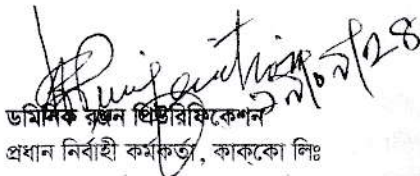 ডমিনিক রঞ্জন পিউরিফিকেশন
প্রধান নির্বাহী কর্মকর্তা, কাক্‌কো লিঃ